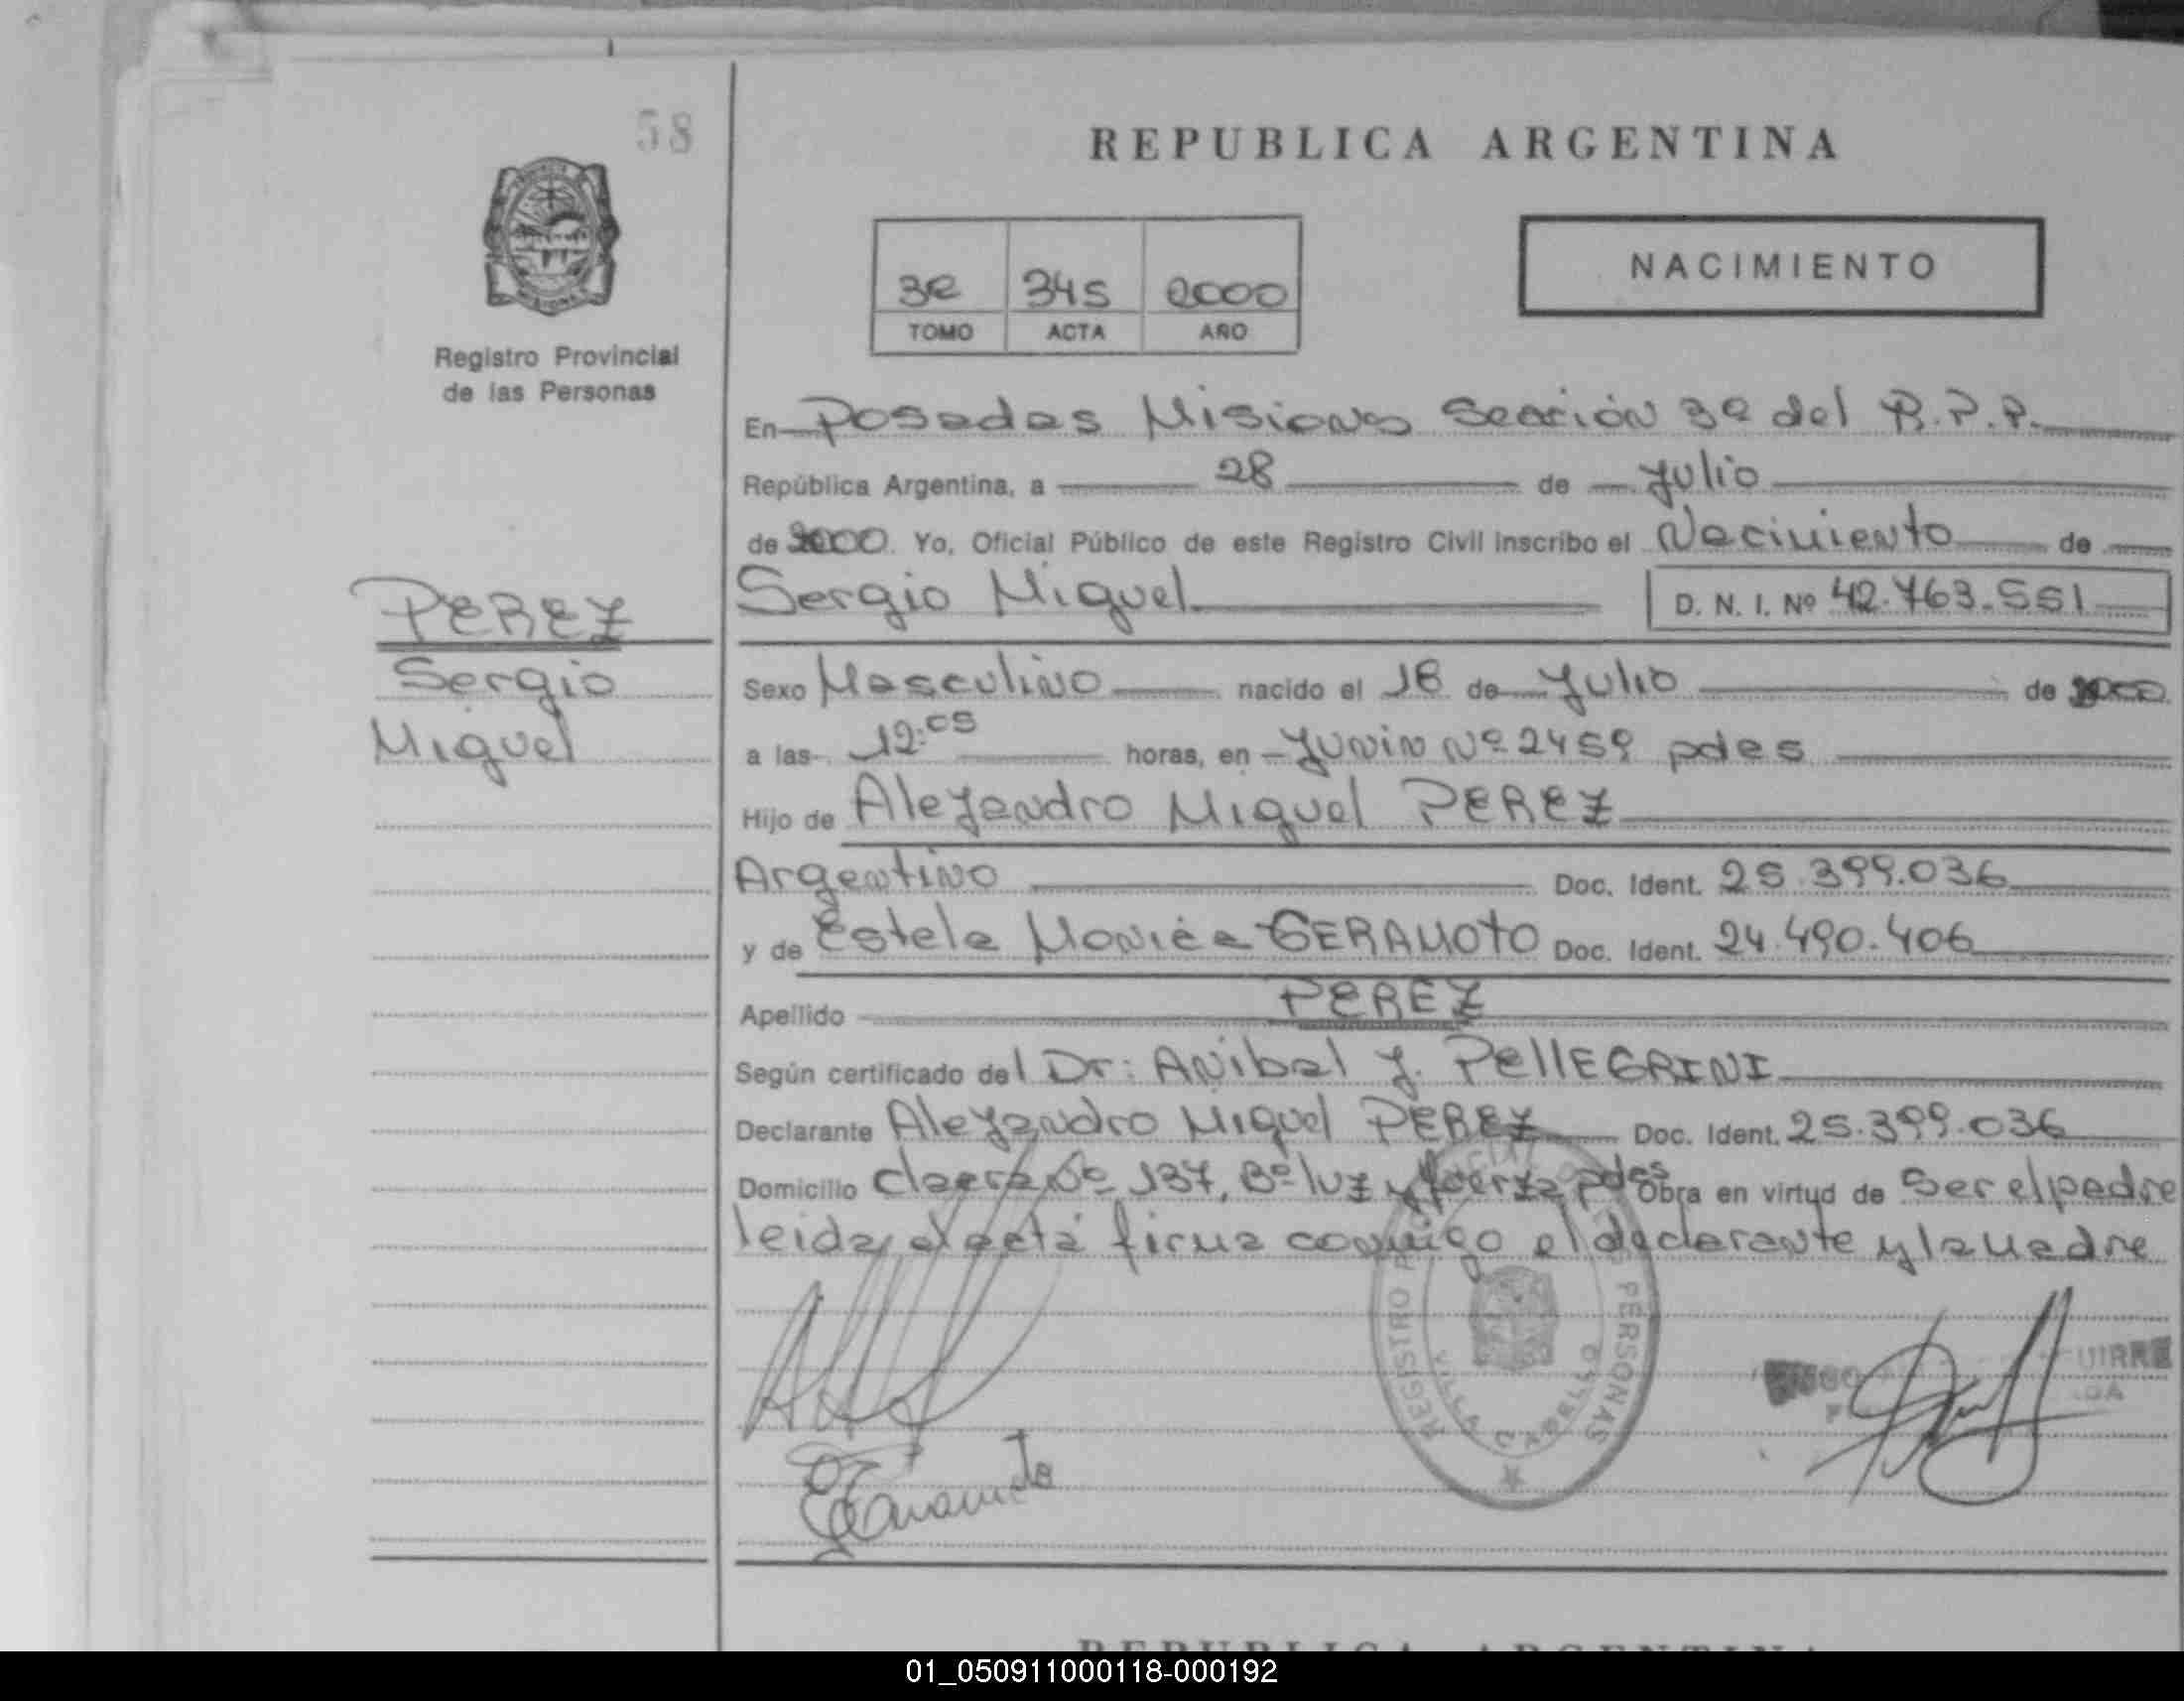 58
REPUBLICA ARGENTINA
NACIMIENTO
3e 345 2000
TOMO ACTA AÑO
Registro Provincial
de las Personas
En Posadas Misiones Sección 3º del R.P.P.
República Argentina, a 28 de Julio
de 2000. Yo, Oficial Público de este Registro Civil inscribo el Nacimiento de
PEREZ
Sergio
Miguel
Sergio Miguel D. N. I. Nº 42.763.551
Sexo Masculino nacido el 18 de Julio de 2000
a las 12:05 horas, en Junin Nº 2459 pdas
Hijo de Alejandro Miguel PEREZ
Argentino Doc. Ident. 25.399.036
y de Estela Monica GERAMOTO Doc. Ident. 24.490.406
Apellido PEREZ
Según certificado del Dr: Anibal J. PellEGRINI
Declarante Alejandro Miguel PEREZ Doc. Ident. 25.399.036
Domicilio Nº 137, Bº luz y fuerza pdas Obra en virtud de Ser el padre
leida el acta firma conmigo el declarante y la madre
REGISTRO PERSONAS
VILLA CABELLO
UIRRE
REPUBLICA ARGENTINA
01_050911000118-000192